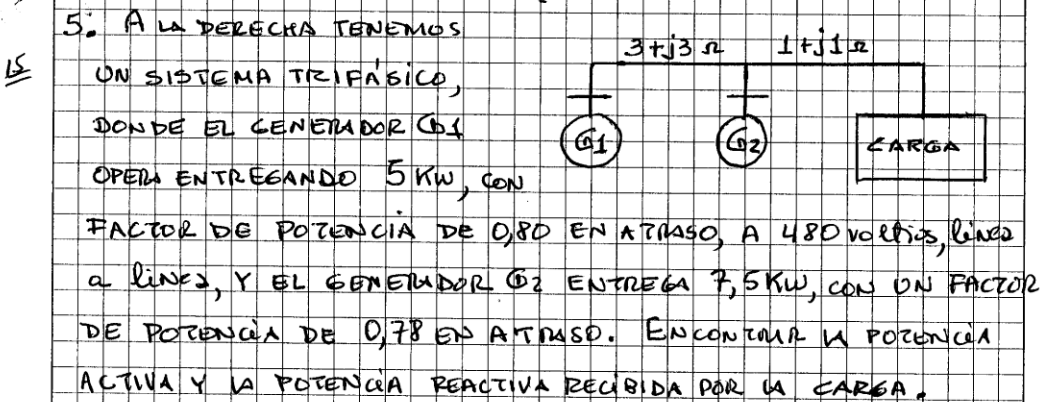 5: A LA DERECHA TENEMOS
15
UN SISTEMA TRIFÁSICO,
DONDE EL GENERADOR G1
OPERA ENTREGANDO 5 KW, CON
3+j3 Ω 1+j1 Ω
G1 G2 CARGA
FACTOR DE POTENCIA DE 0,80 EN ATRASO, A 480 voltios, línea
a línea, Y EL GENERADOR G2 ENTREGA 7,5 KW, CON UN FACTOR
DE POTENCIA DE 0,78 EN ATRASO. ENCONTRAR LA POTENCIA
ACTIVA Y LA POTENCIA REACTIVA RECIBIDA POR LA CARGA.